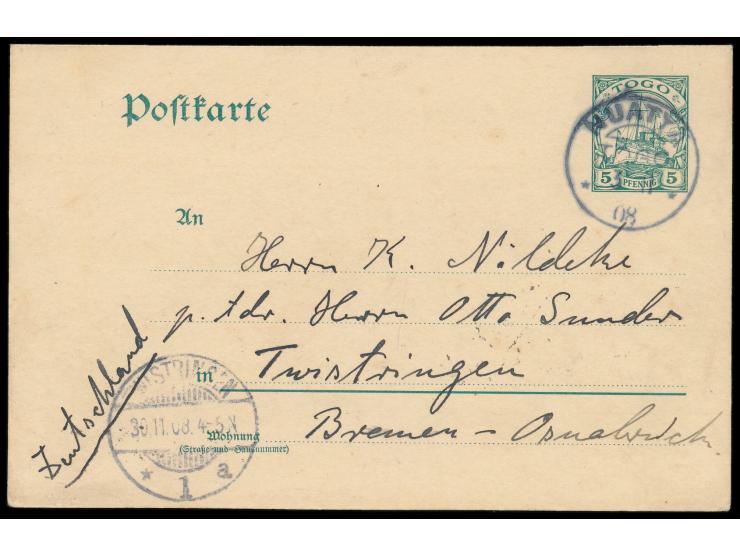 Postkarte
TOGO
5 PFENNIG 5
NUATJÄ
TOGO
3 11
08
An
Herrn K. Nöldeke
p. Adr. Herrn Otto Sunder
in Twistringen
Bremen-Osnabrück.
Wohnung
(Straße und Hausnummer)
Deutschland
TWISTRINGEN
30.11.08. 4-5N
* 1 a